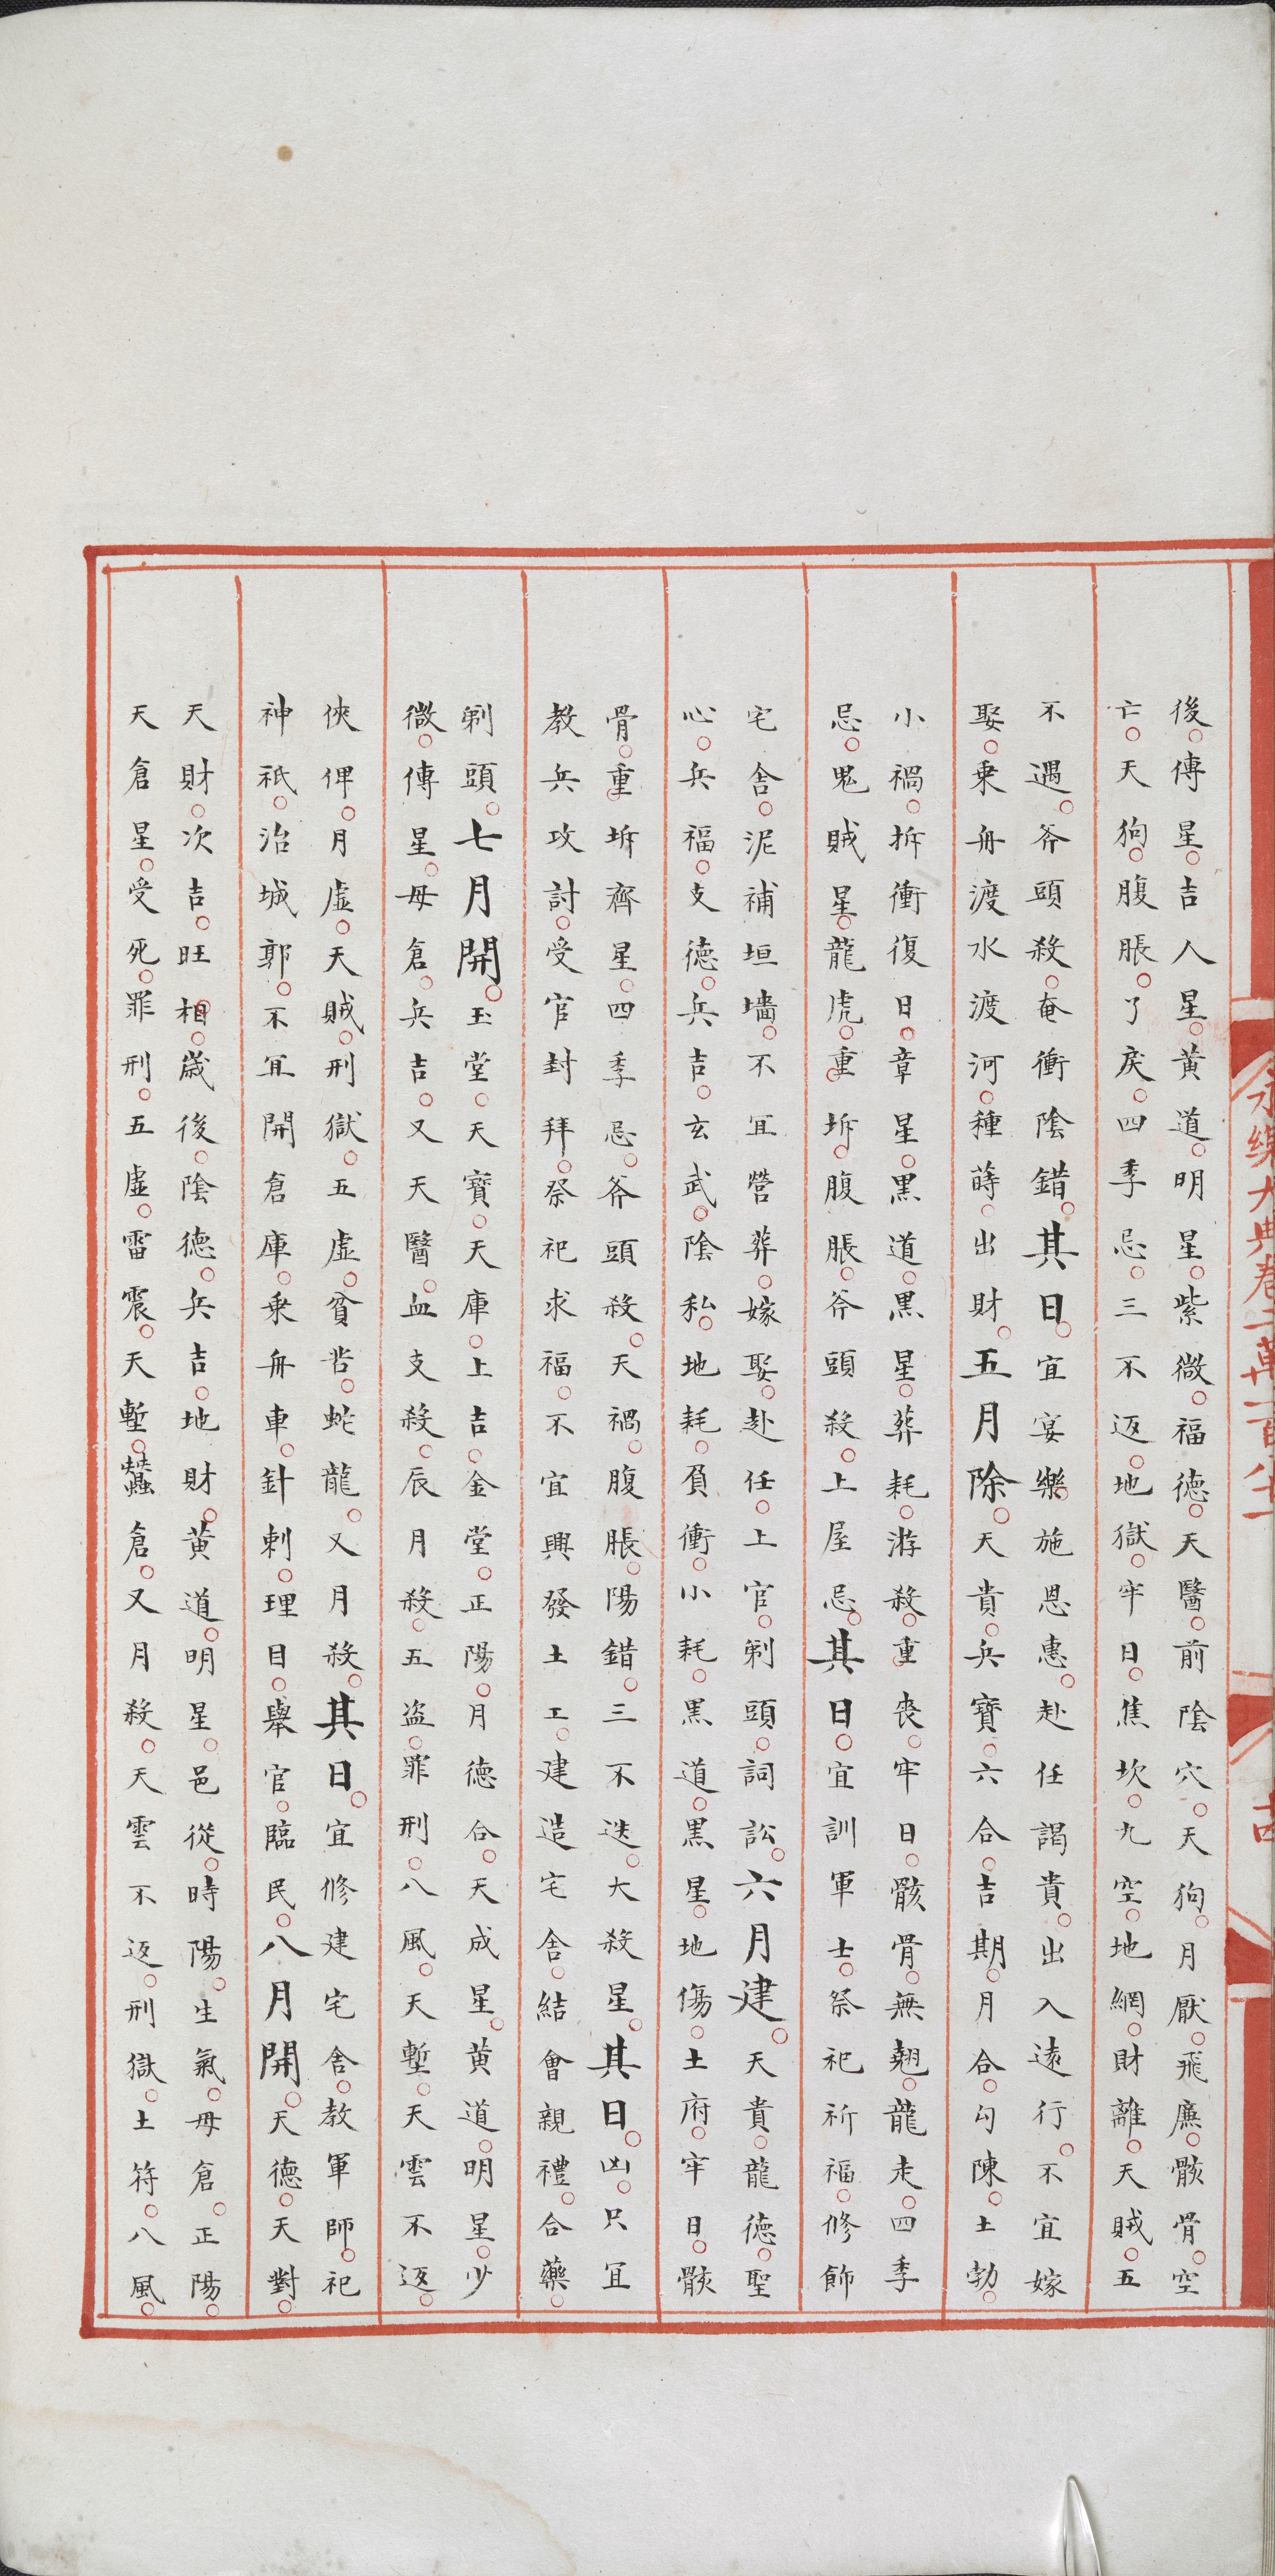 後。傳星。吉人星。黃道。明星。紫微。福德。天醫。前陰穴。天狗。月厭。飛廉。骸骨。空
亡。天狗。腹脹。了戾。四季忌。三不返。地獄。牢日。焦坎。九空。地網。財離。天賊。五
不遇。斧頭殺。奄衝陰錯。其日。宜宴樂。施恩惠。赴任謁貴。出入遠行。不宜嫁
娶。乗舟渡水渡河。種蒔。出財。五月除。天貴。兵寶。六合。吉期。月合。勾陳。土勃。
小禍。拆衝復日。章星。黑道。黑星。葬耗。游殺。重喪。牢日。骸骨。無翹。龍走。四季
忌。鬼賊星。龍虎。重坼。腹脹。斧頭殺。上屋忌。其日。宜訓軍士。祭祀祈福。修飾
宅舍。泥補垣墻。不宜營葬。嫁娶。赴任。上官。剃頭。詞訟。六月建。天貴。龍德。聖
心。兵福。支德。兵吉。玄武。陰私。地耗。負衝。小耗。黑道。黑星。地傷。土府。牢日。骸
骨。重坼齊星。四季忌。斧頭殺。天禍。腹脹。陽錯。三不迭。大殺星。其日。凶。只宜
教兵攻討。受官封拜。祭祀求福。不宜興發土工。建造宅舍。結會親禮。合藥。
剃頭。七月開。玉堂。天寶。天庫。上吉。金堂。正陽。月德合。天成星。黃道。明星。少
微。傳星。母倉。兵吉。又天醫。血支殺。辰月殺。五盜。罪刑。八風。天塹。天雲不返。
俠伻。月虛。天賊。刑獄。五虛。貧嵓。蛇龍。又月殺。其日。宜修建宅舍。教軍師。祀
神祇。治城郭。不宜開倉庫。乗舟車。針刺。理目。舉官。臨民。八月開。天德。天對。
天財。次吉。旺相。歲後。陰德。兵吉。地財。黃道。明星。邑從。時陽。生氣。母倉。正陽。
天倉星。受死。罪刑。五虛。雷震。天塹。蠶倉。又月殺。天雲不返。刑獄。土符。八風。
永樂大典卷二萬一百八十一